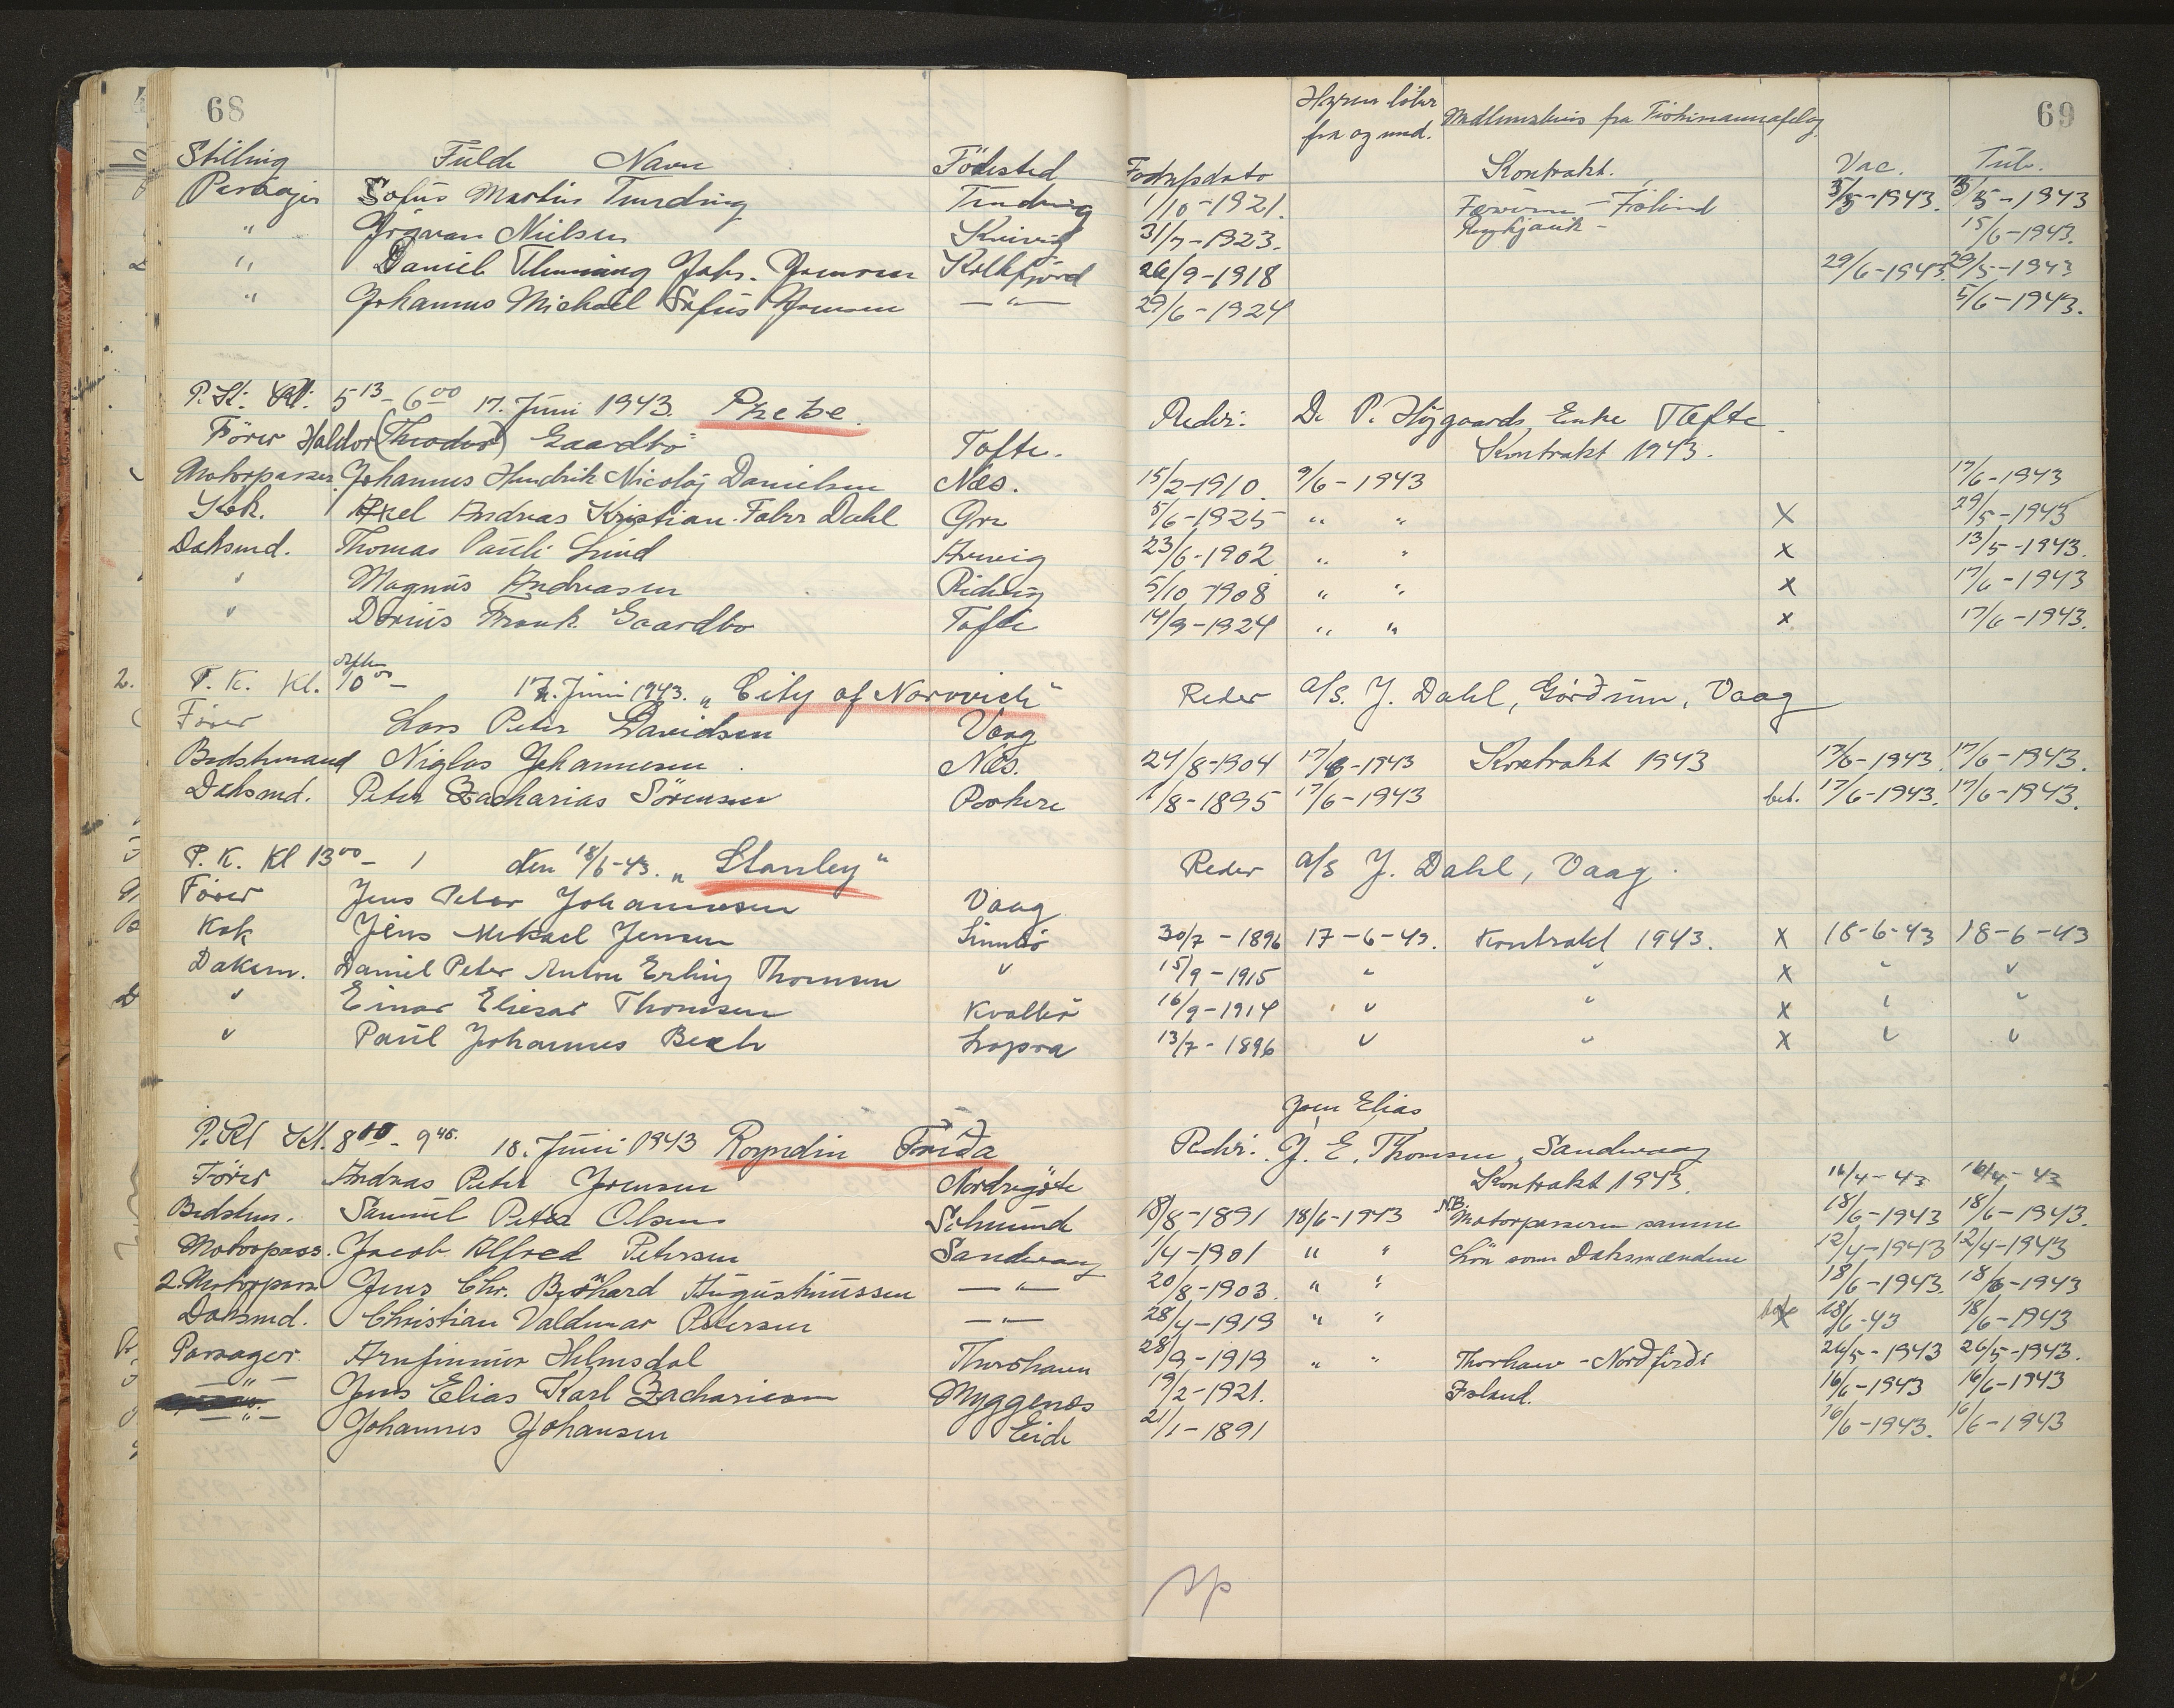 68
69
Stilling Fulde Navn Födested Födselsdato Hyren löber fra og med. Medlemsbevis fra Fiskimannafelag Kontrakt. Vac. Tub.
Passager Sofus Martin Tvinding 1/10-1921. Færöerne - Island 3/5-1943. 3/5-1943
" Jögvan Nielsen Kvivig 31/7-1923. Reykjavik - 15/6-1943.
" Daniel Flemming Johs. Joensen Kolkfjord 26/9-1918 29/6-1943. 29/5-1943
" Johannus Michael Sofus Joensen —"— 29/6-1924 5/6-1943.
P.K. Kl: 5 13 - 6 00 17. Juni 1943. Phebe. Rederi: D. P. Höjgaards Enke Tofte.
Förer Haldor (Theodor) Gaardbo Tofte. Kontrakt 1943.
Motorpasser Johannus Hendrik Nicolaj Danielsen Næs. 15/2-1910. 9/6-1943 17/6-1943
Kok. Axel Andreas Kristian Faber Dahl Öre 5/6-1925 " " X 29/5-1943
Daksmd. Thomas Pauli Lind Arnvig 23/6-1902 " " x 13/5-1943.
" Magnus Andreasen Ridvig 5/10-1908 " " x 17/6-1943
" Dorius Frank Gaardbo Tofte 14/9-1924 " " x 17/6-1943.
P.K. Kl. 10 00 - 17. Juni 1943. "City of Norwich" Reder a/s. J. Dahl, Görðum, Vaag
Förer Lars Peter Davidsen Vaag
Bedstmand Niglas Johannesen. Næs. 24/8-1904 17/6-1943 Kontrakt 1943 17/6-1943. 17/6-1943.
Daksmd. Peter Zacharias Sörensen Porkere 1/8-1895 17/6-1943 bet. 17/6-1943. 17/6-1943.
P.K. Kl 13 00 - den 18/6-43. "Stanley" Reder a/s J. Dahl, Vaag.
Förer Jens Peter Johannesen Vaag
Kok Jens Mikael Jensen Sumbö 30/7-1896 17-6-43. Kontrakt 1943. X 18-6-43 18-6-43
Daksm. Daniel Peter Anton Erling Thomsen " 15/9-1915 " " X " "
" Einar Eliesar Thomsen Kvalbö 16/9-1914 " " X " "
" Paul Johannes Bech Lopra 13/7-1896 " " X " "
P.Kl Kl. 8 00 - 9 45. 18. Juni 1943 Royndin Friða Joen Elias
Rederi: J. E. Thomsen, Sandevaag
Förer Andreas Peter Joensen Nordregöte Kontrakt 1943. 16/4-43 16/4-43
Bedstm. Samuel Peter Olsen Selmunde 18/8-1891 18/6-1943 NB. Motorpasseren samme 18/6-1943 18/6-1943.
Motorpass. Jacob Alfred Petersen Sandevaag 1/4-1901 " " Lön som Daksmændene 12/4-1943 12/4-1943
2. Motorpass Jens Chr. Byrhard Augustinussen —"— 20/8-1903. " " 18/6-1943. 18/6-1943
Daksmd. Christian Valdemar Petersen —"— 28/4-1919 " " 18/6-43 18/6-1943
Passager. Arnfinnur Helmsdal Thorshavn 28/9-1919 " " Thorhavn - Norðfirði 26/5-1943 26/5-1943.
—"— Jens Elias Karl Zachariasen Myggenæs 19/2-1921. Island. 16/6-1943 16/6-1943
—"— Johannes Johansen Eide 21/1-1891 16/6-1943. 16/6-1943